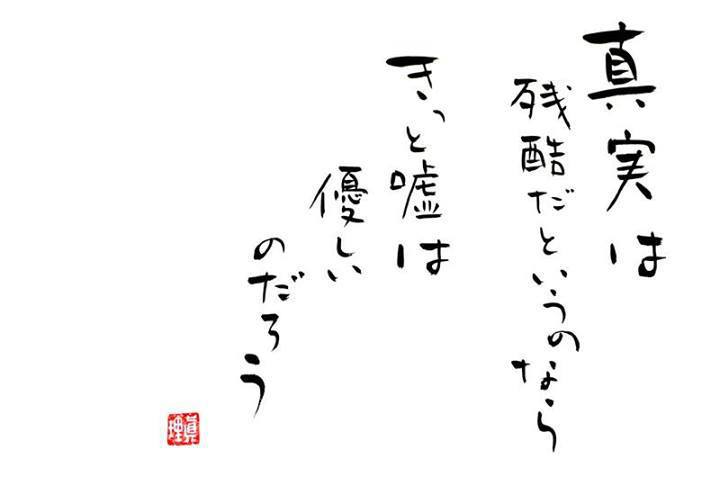 真実は
残酷だというのなら
きっと嘘は
優しい
のだろう
眞理